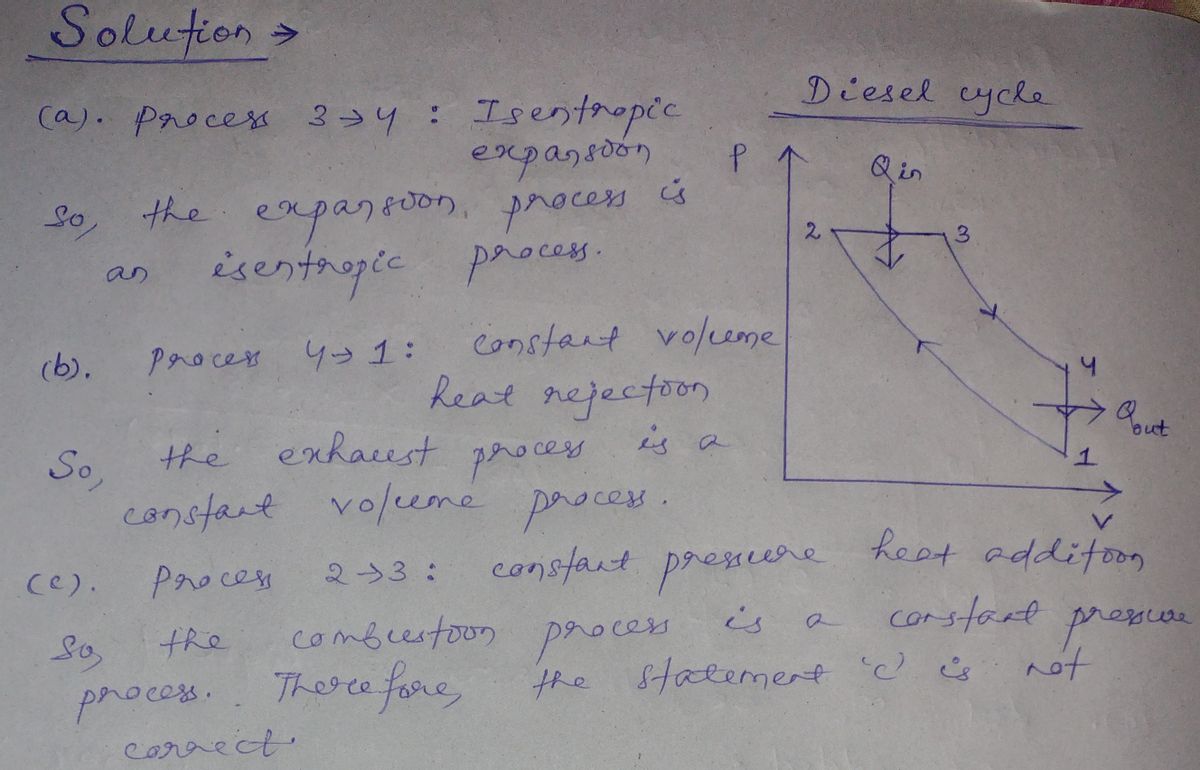 Solution →
(a). Process 3→4 : Isentropic
expansion
So, the expansion process is
an isentropic process.
(b). Process 4→1 : constant volume
heat rejection
So, the exhaust process is a
constant volume process.
Diesel cycle
P
Qin
2
3
4
Qout
1
V
(c). Process 2→3 : constant pressure heat addition
So, the combustion process is a constant pressure
process. Therefore, the statement 'c' is not
correct.